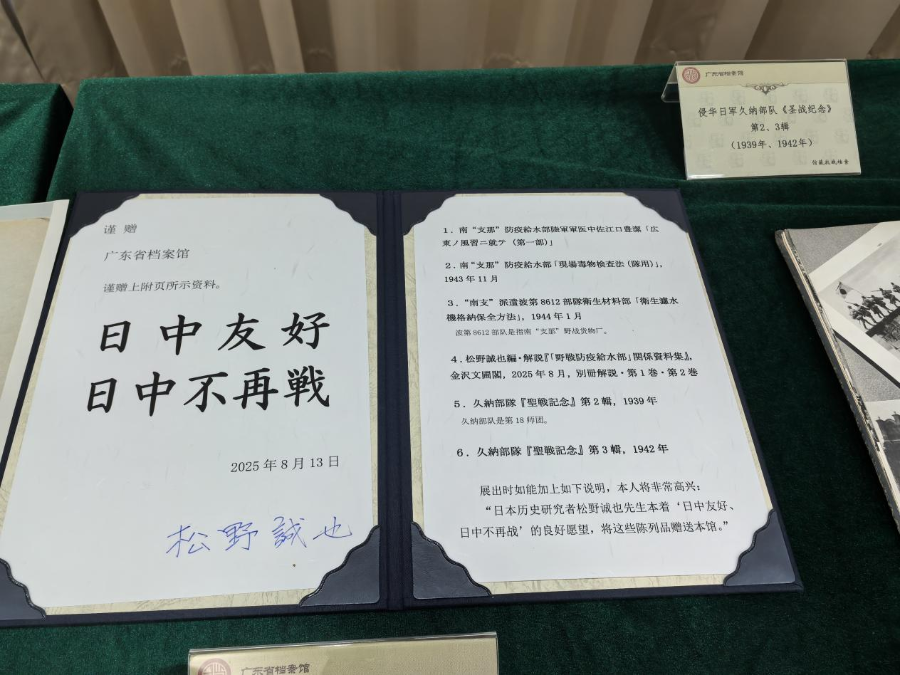 广东省档案馆
侵华日军久纳部队《圣战纪念》
第2、3辑
（1939年、1942年）
谨 赠
广东省档案馆
谨赠上附页所示资料。
日中友好
日中不再戦
2025 年 8 月 13 日
松野誠也
1．南“支那”防疫給水部陸軍軍医中佐江口豊潔「広
東ノ風習ニ就テ（第一部）」
2．南“支那”防疫給水部「現場毒物検査法（隊用）」，
1943 年 11 月
3．“南支”派遣波第 8612 部隊衛生材料部「衛生濾水
機格納保全方法」，1944 年 1 月
波第 8612 部队是指南“支那”野战货物厂。
4．松野誠也編・解説『「野戦防疫給水部」関係資料集』，
金沢文圃閣，2025 年 8 月，別冊解説・第 1 巻・第 2 巻
5．久納部隊『聖戦記念』第 2 輯，1939 年
久纳部队是第 18 师团。
6．久納部隊『聖戦記念』第 3 輯，1942 年
展出时如能加上如下说明，本人将非常高兴：
“日本历史研究者松野诚也先生本着‘日中友好、
日中不再战’的良好愿望，将这些陈列品赠送本馆。”
广东省档案馆